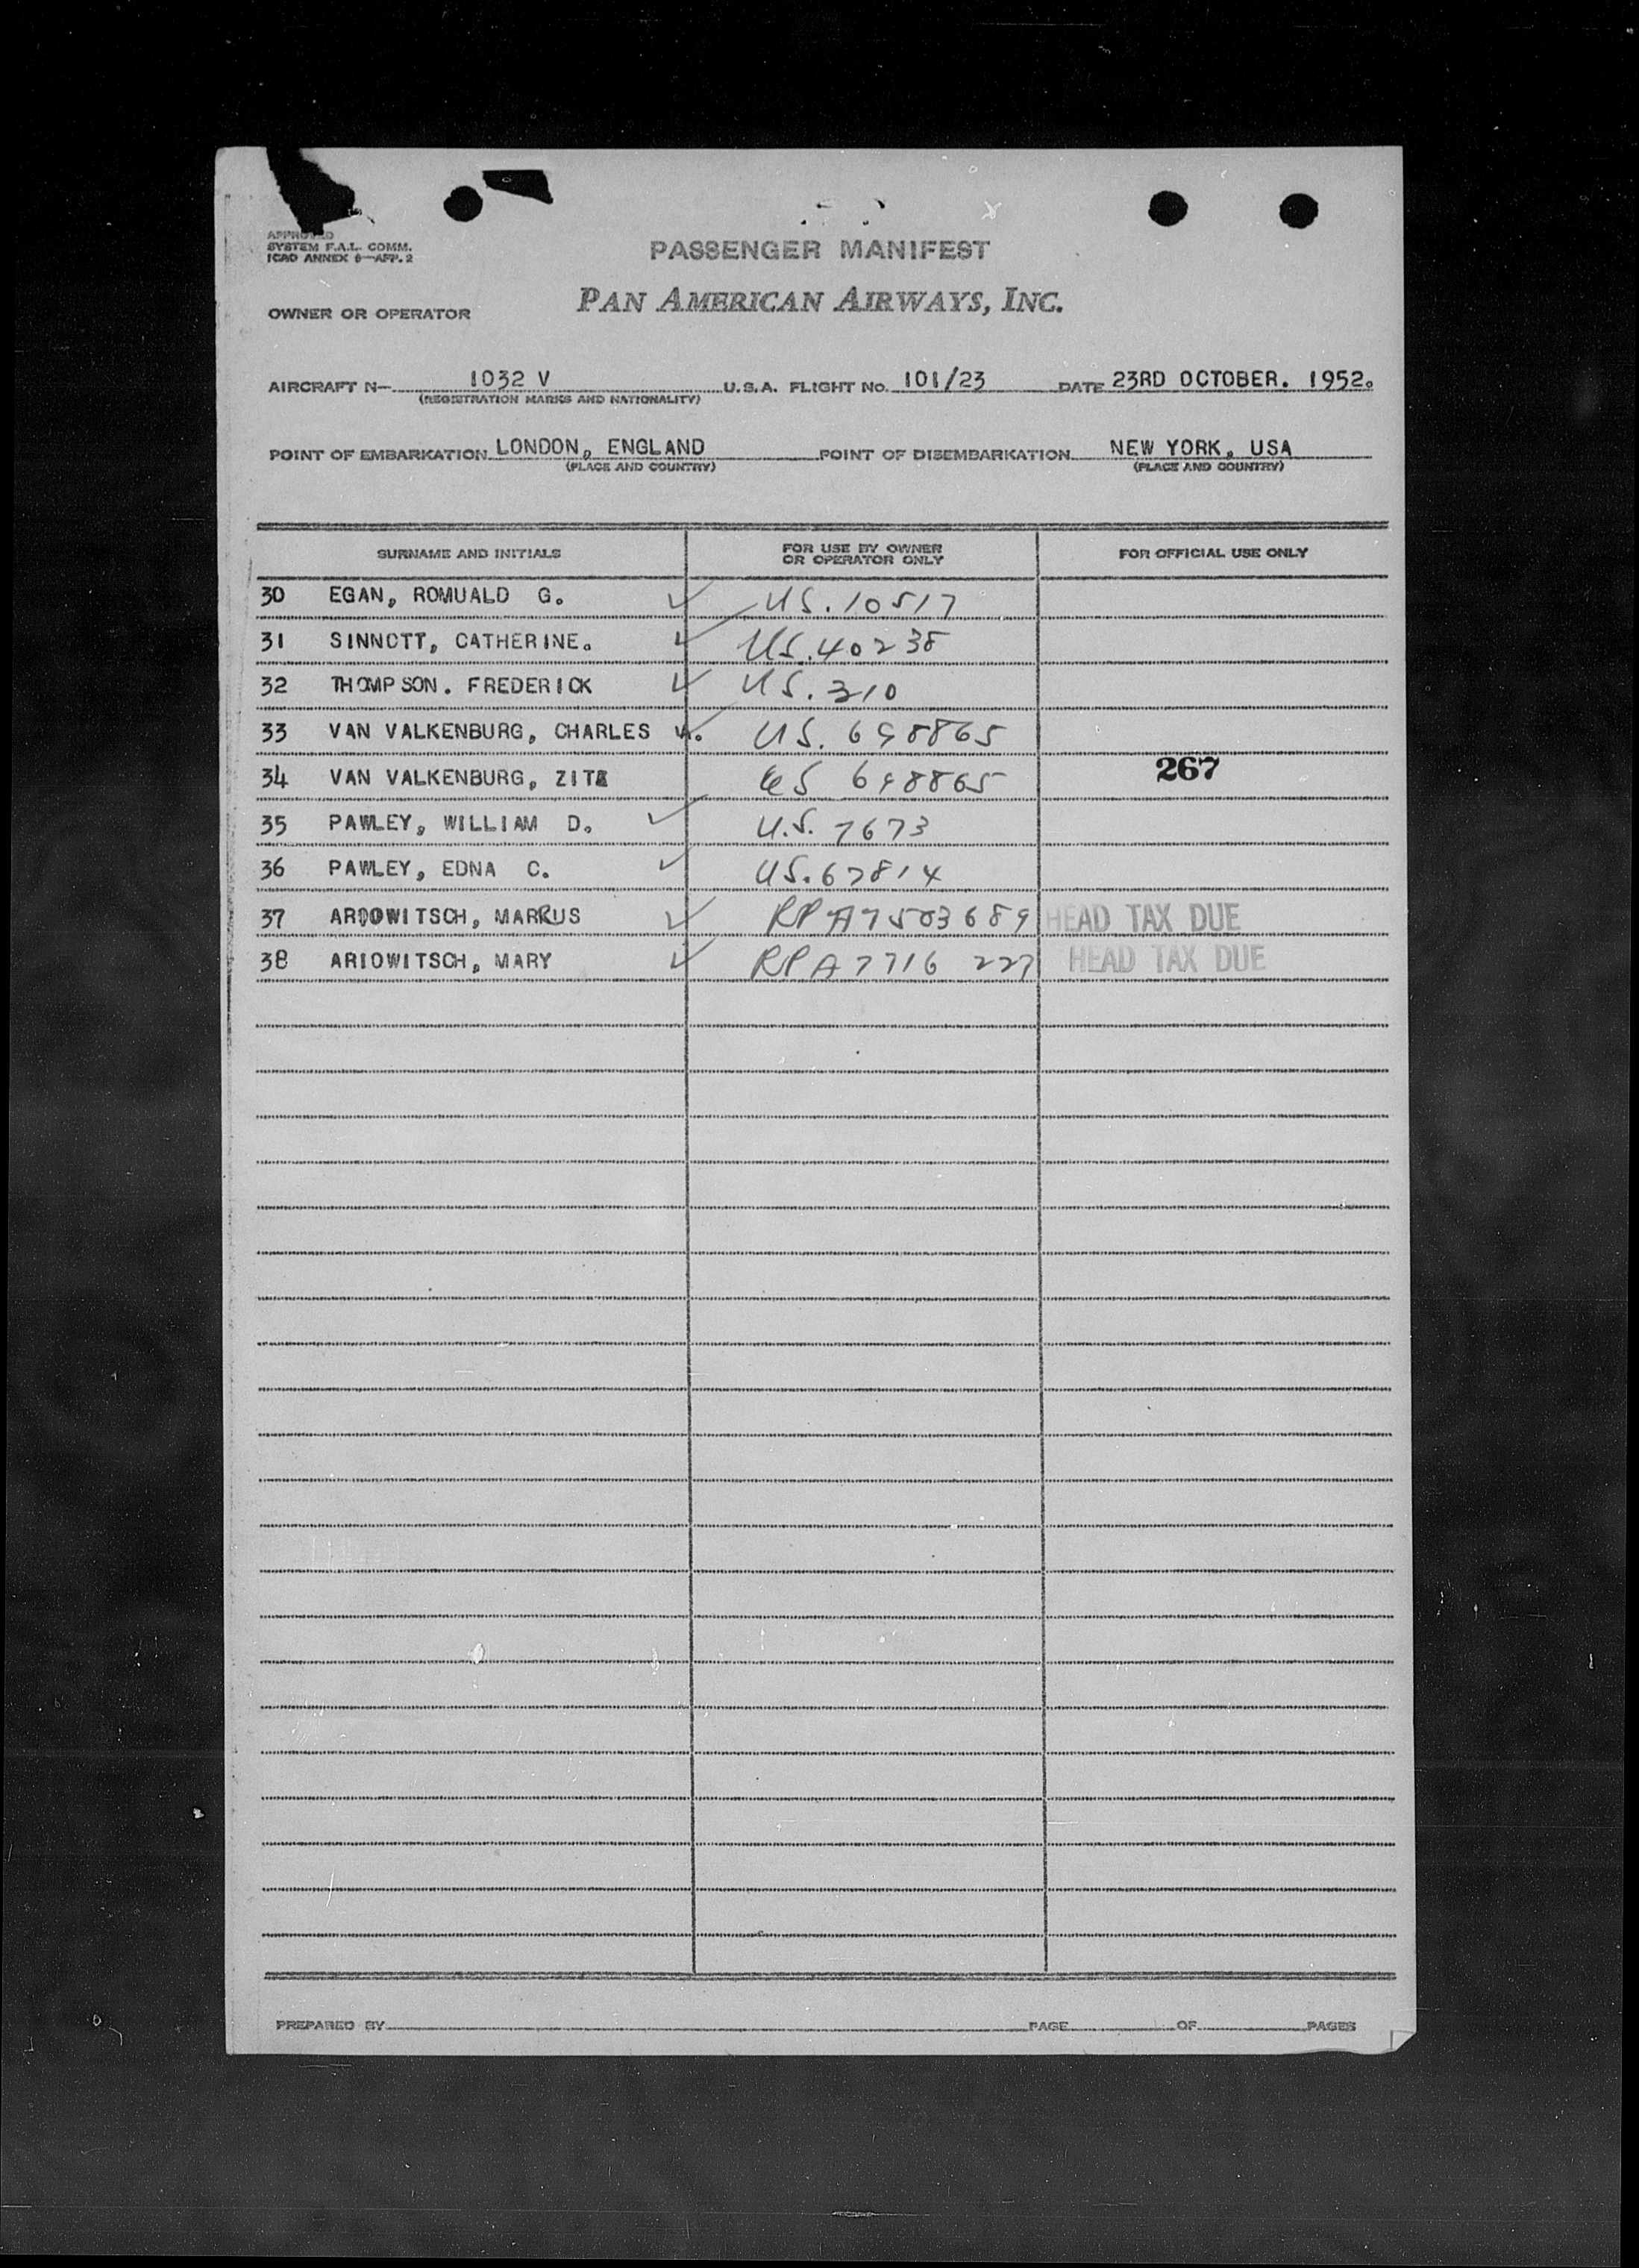 APPROVED
SYSTEM F.A.L. COMM.
ICAO ANNEX 9—APP. 2
PASSENGER MANIFEST
OWNER OR OPERATOR PAN AMERICAN AIRWAYS, INC.
AIRCRAFT N— 1032 V U.S.A. FLIGHT No. 101/23 DATE 23RD OCTOBER. 1952.
(REGISTRATION MARKS AND NATIONALITY)
POINT OF EMBARKATION LONDON, ENGLAND POINT OF DISEMBARKATION NEW YORK, USA
(PLACE AND COUNTRY) (PLACE AND COUNTRY)
SURNAME AND INITIALS FOR USE BY OWNER OR OPERATOR ONLY FOR OFFICIAL USE ONLY
30 EGAN, ROMUALD G. US. 10517
31 SINNOTT, CATHERINE. US. 40238
32 THOMPSON. FREDERICK US. 310
33 VAN VALKENBURG, CHARLES W. US. 698865
34 VAN VALKENBURG, ZITA US 698865 267
35 PAWLEY, WILLIAM D. U.S. 7673
36 PAWLEY, EDNA C. US. 67814
37 ARIOWITSCH, MARKUS RP A7503689 HEAD TAX DUE
38 ARIOWITSCH, MARY RP A7716 227 HEAD TAX DUE
PREPARED BY PAGE OF PAGES